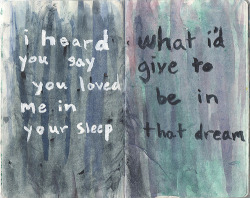 i heard
you say
you loved
me in
your sleep
what i'd
give to
be in
that dream